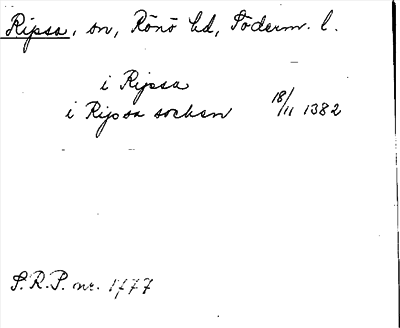 Ripsa, sn, Rönö hd, Söderm. l.
i Ripsa
i Ripsa socken 18/11 1382
S.R.P. nr. 1777